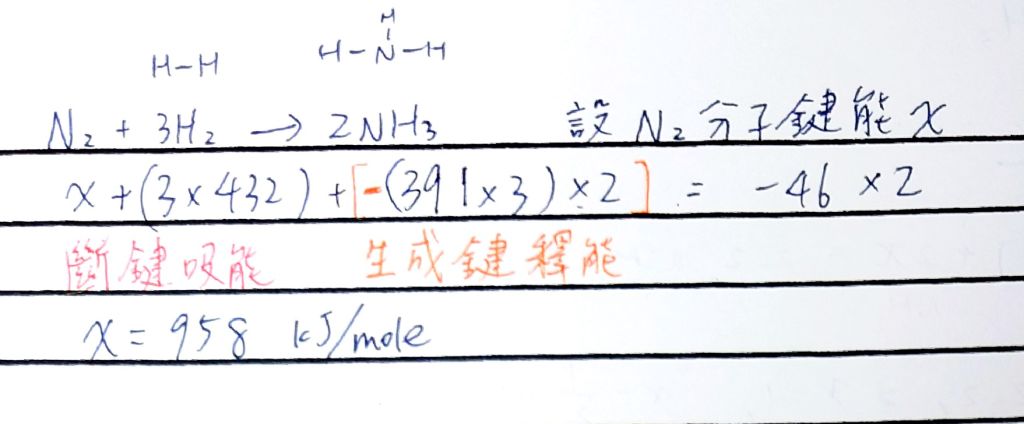 H
H-H H-N-H
N₂ + 3H₂ → 2NH₃ 設 N₂ 分子鍵能 x
x + (3×432) + [-(391×3)×2] = -46 ×2
斷鍵吸能 生成鍵釋能
x = 958 kJ/mole